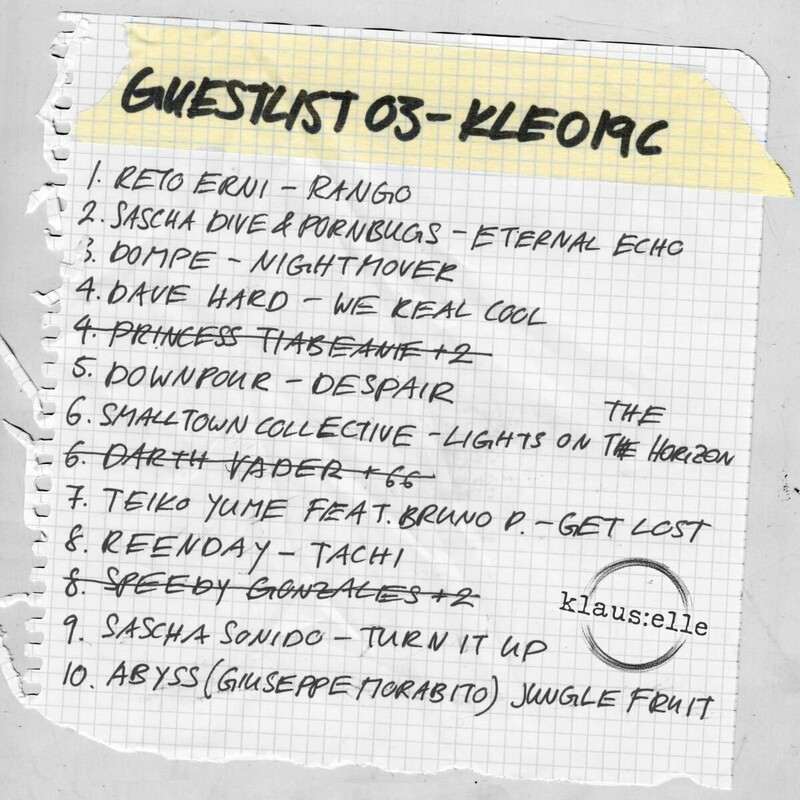 GUESTLIST 03 - KLE019C
1. RETO ERNI - RANGO
2. SASCHA DIVE & PORNBUGS - ETERNAL ECHO
3. DOMPE - NIGHTMOVER
4. DAVE HARD - WE REAL COOL
4. PRINCESS TIABEANIE +2
5. DOWNPOUR - DESPAIR
THE
6. SMALLTOWN COLLECTIVE - LIGHTS ON THE HORIZON
6. DARTH VADER +66
7. TEIKO YUME FEAT. BRUNO P. - GET LOST
8. REENDAY - TACHI
8. SPEEDY GONZALES +2
klaus:elle
9. SASCHA SONIDO - TURN IT UP
10. ABYSS (GIUSEPPE MORABITO) JUNGLE FRUIT